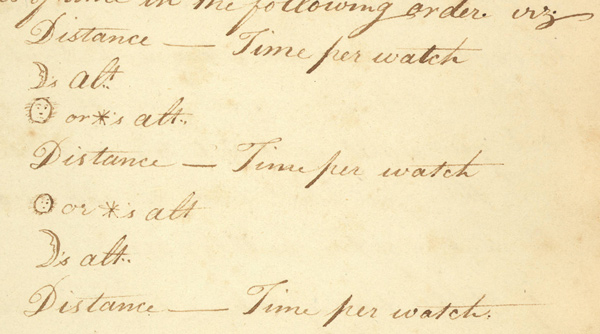 in the following order. viz
Distance — Time per watch
☽'s alt.
☉ or *'s alt.
Distance — Time per watch
☉ or *'s alt
☽'s alt.
Distance — Time per watch.